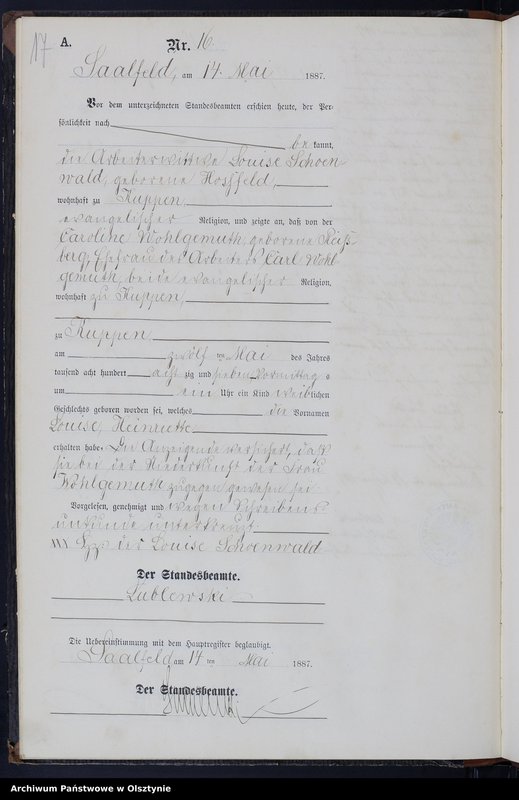 17
A.
Nr. 16.
Saalfeld, am 14. Mai 1887.
Vor dem unterzeichneten Standesbeamten erschien heute, der Per-
sönlichkeit nach
be kannt,
die Arbeiterwittwe Louise Schoen-
wald, geborene Hoßfeld,
wohnhaft zu Kuppen,
evangelischer Religion, und zeigte an, daß von der
Caroline Wohlgemuth, geborene Reiß-
berg, Ehefrau des Arbeiters Carl Wohl-
gemuth, beide evangelischer Religion,
wohnhaft zu Kuppen,
zu Kuppen,
am zwölf ten Mai des Jahres
tausend acht hundert acht zig und sieben Vormittags
um ein Uhr ein Kind weiblichen
Geschlechts geboren worden sei, welches die Vornamen
Louise, Heinriette
erhalten habe. Die Anzeigende versichert, daß
sie bei der Niederkunft der Frau
Wohlgemuth zugegen gewesen sei.
Vorgelesen, genehmigt und wegen Schreibens-
unkunde unterkreuzt.
XXX der Louise Schoenwald
Der Standesbeamte.
Lublewski
Die Uebereinstimmung mit dem Hauptregister beglaubigt.
Saalfeld am 14 ten Mai 1887.
Der Standesbeamte.
Archiwum Państwowe w Olsztynie